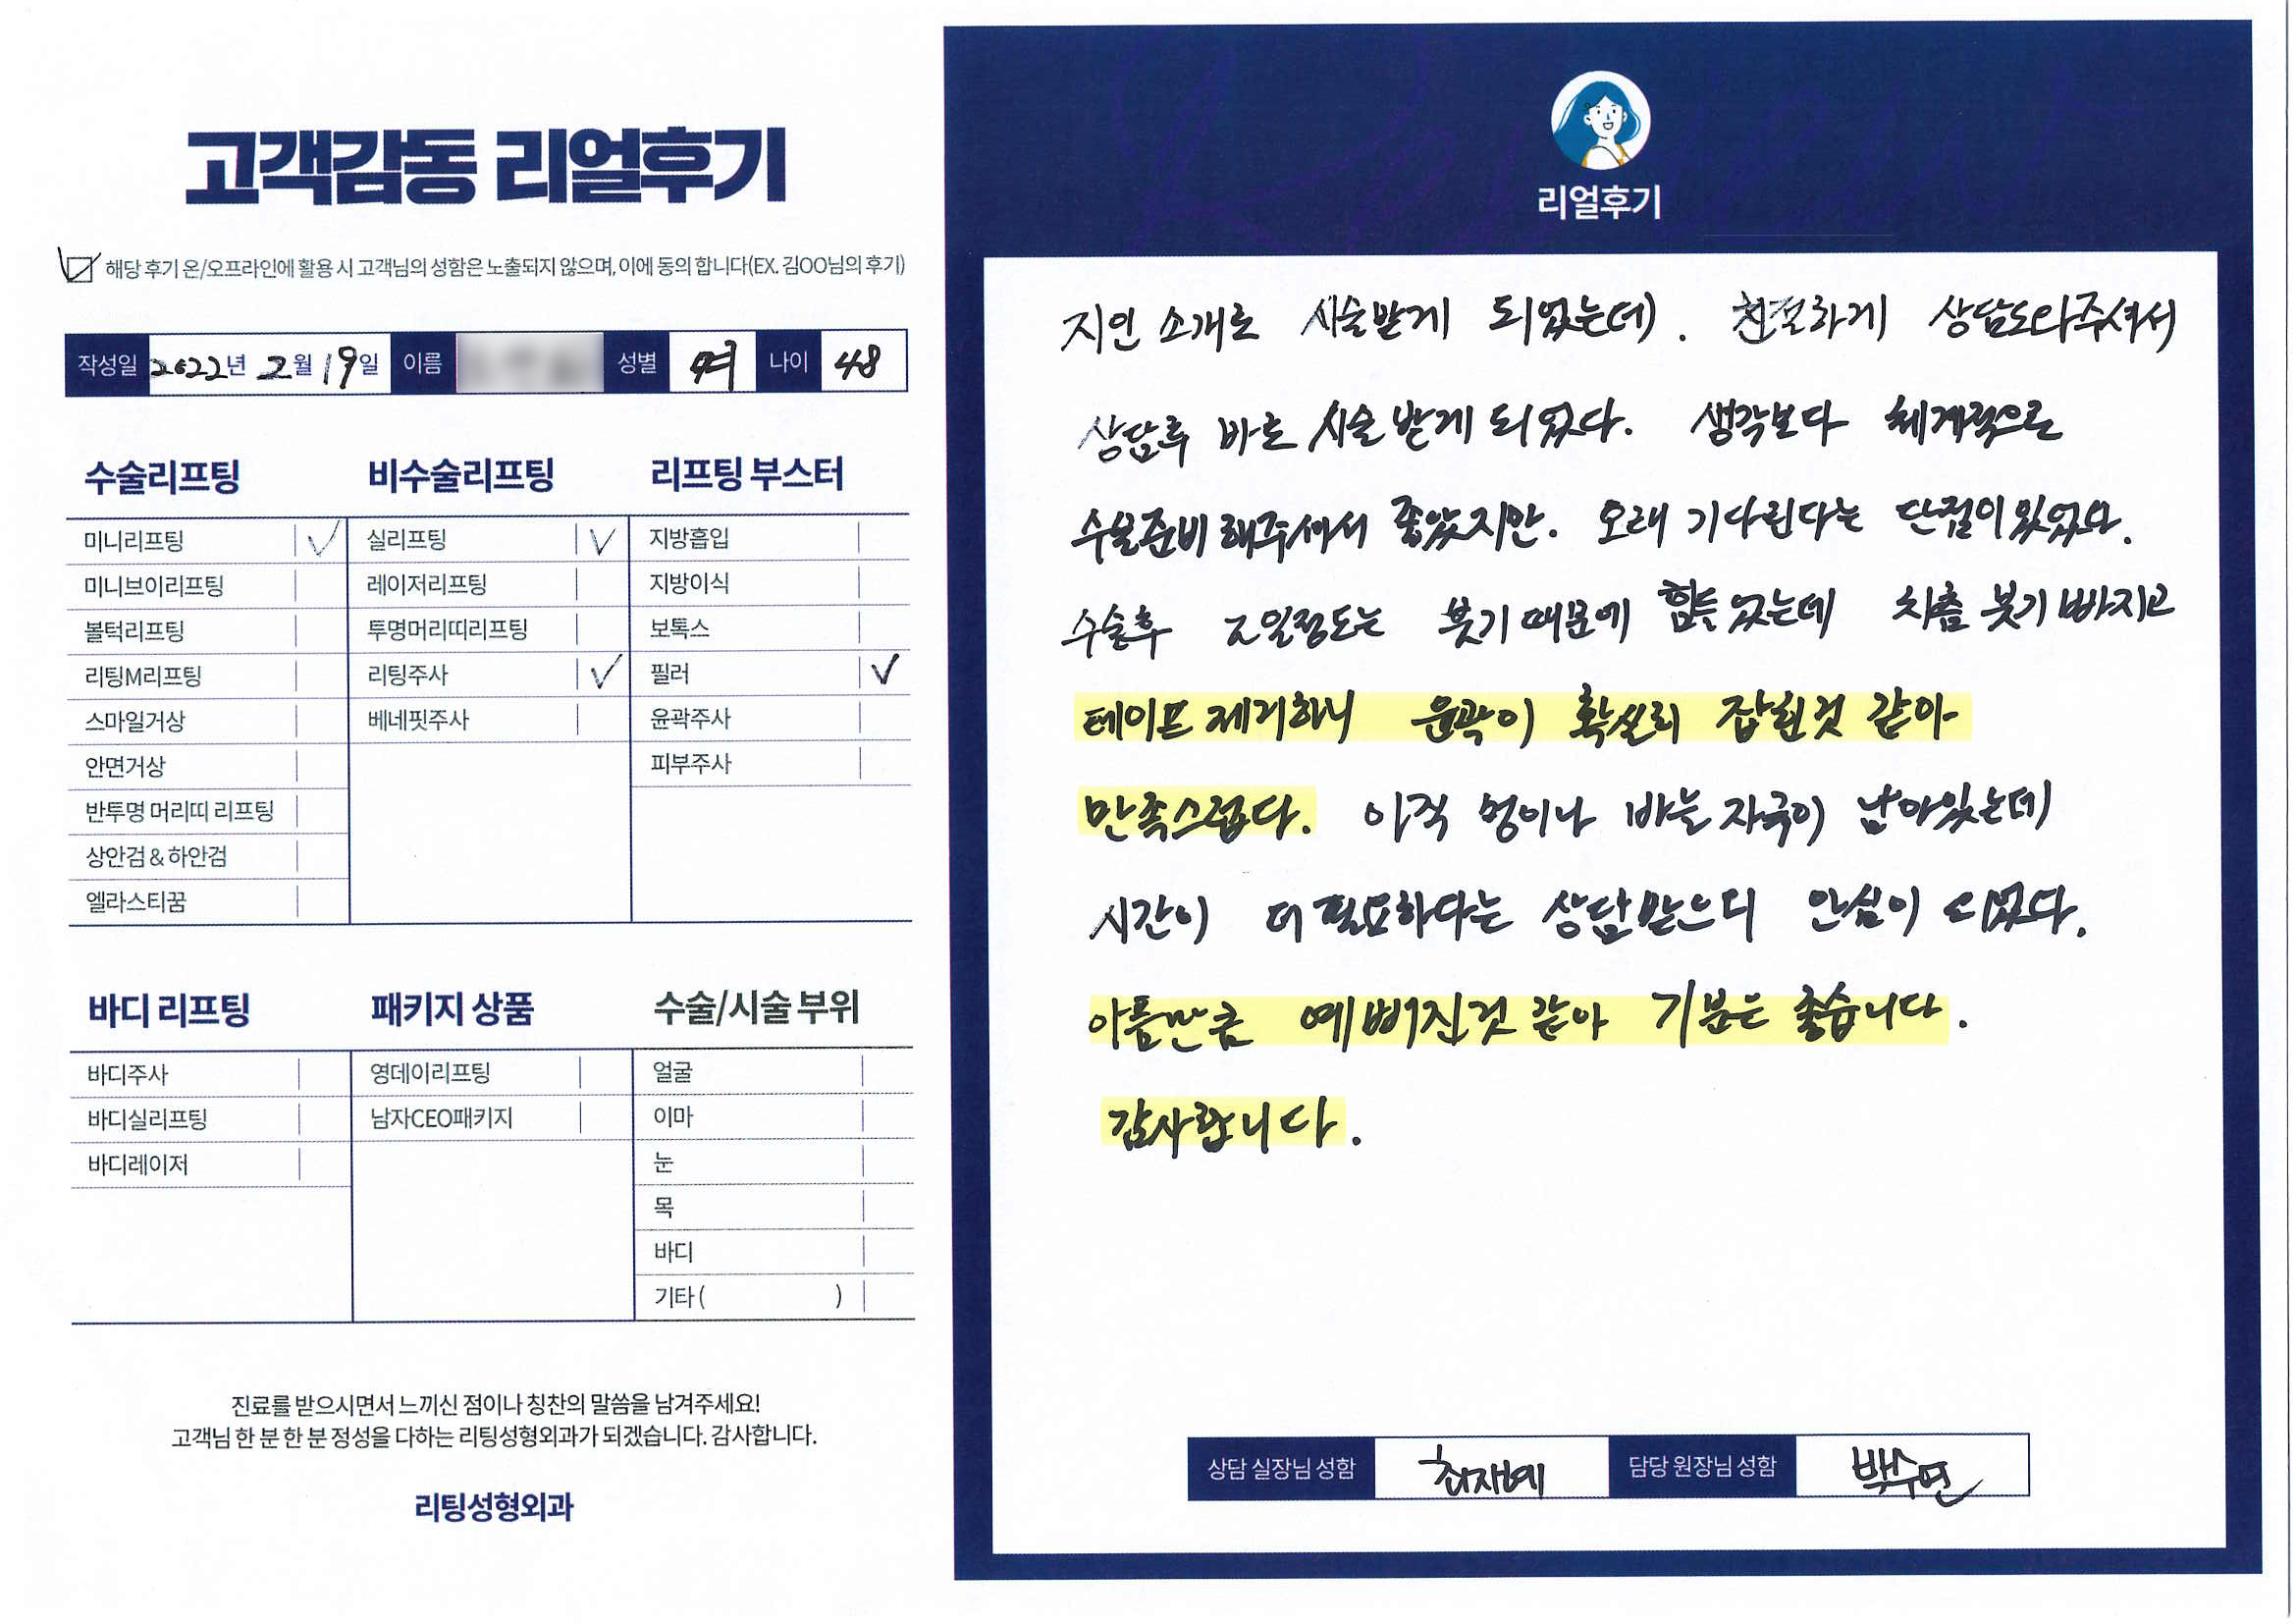 고객감동 리얼후기
해당 후기 온/오프라인에 활용 시 고객님의 성함은 노출되지 않으며, 이에 동의 합니다(EX. 김OO님의 후기)
작성일 2022년 2월 19일 이름 성별 여 나이 48
수술리프팅
미니리프팅
미니브이리프팅
볼턱리프팅
리팅M리프팅
스마일거상
안면거상
반투명 머리띠 리프팅
상안검 & 하안검
엘라스티꿈
비수술리프팅
실리프팅
레이저리프팅
투명머리띠리프팅
리팅주사
베네핏주사
리프팅 부스터
지방흡입
지방이식
보톡스
필러
윤곽주사
피부주사
바디 리프팅
바디주사
바디실리프팅
바디레이저
패키지 상품
영데이리프팅
남자CEO패키지
수술/시술 부위
얼굴
이마
눈
목
바디
기타 ( )
진료를 받으시면서 느끼신 점이나 칭찬의 말씀을 남겨주세요!
고객님 한 분 한 분 정성을 다하는 리팅성형외과가 되겠습니다. 감사합니다.
리팅성형외과
리얼후기
지인 소개로 시술받게 되었는데. 친절하게 상담도와주셔서
상담후 바로 시술받게 되었다. 생각보다 체계적으로
수술준비해주셔서 좋았지만. 오래 기다린다는 단점이있었으.
수술후 2일정도는 붓기때문에 힘들었는데 차츰 붓기빠지고
테이프 제거하니 윤곽이 확실히 잡힌것 같아
만족스럽다. 아직 멍이나 바늘자국이 남아있는데
시간이 더 필요하다는 상담받으니 안심이 되었다.
아픔만큼 예뻐진것 같아 기분은 좋습니다.
감사합니다.
상담 실장님 성함 최재예 담당 원장님 성함 백수연